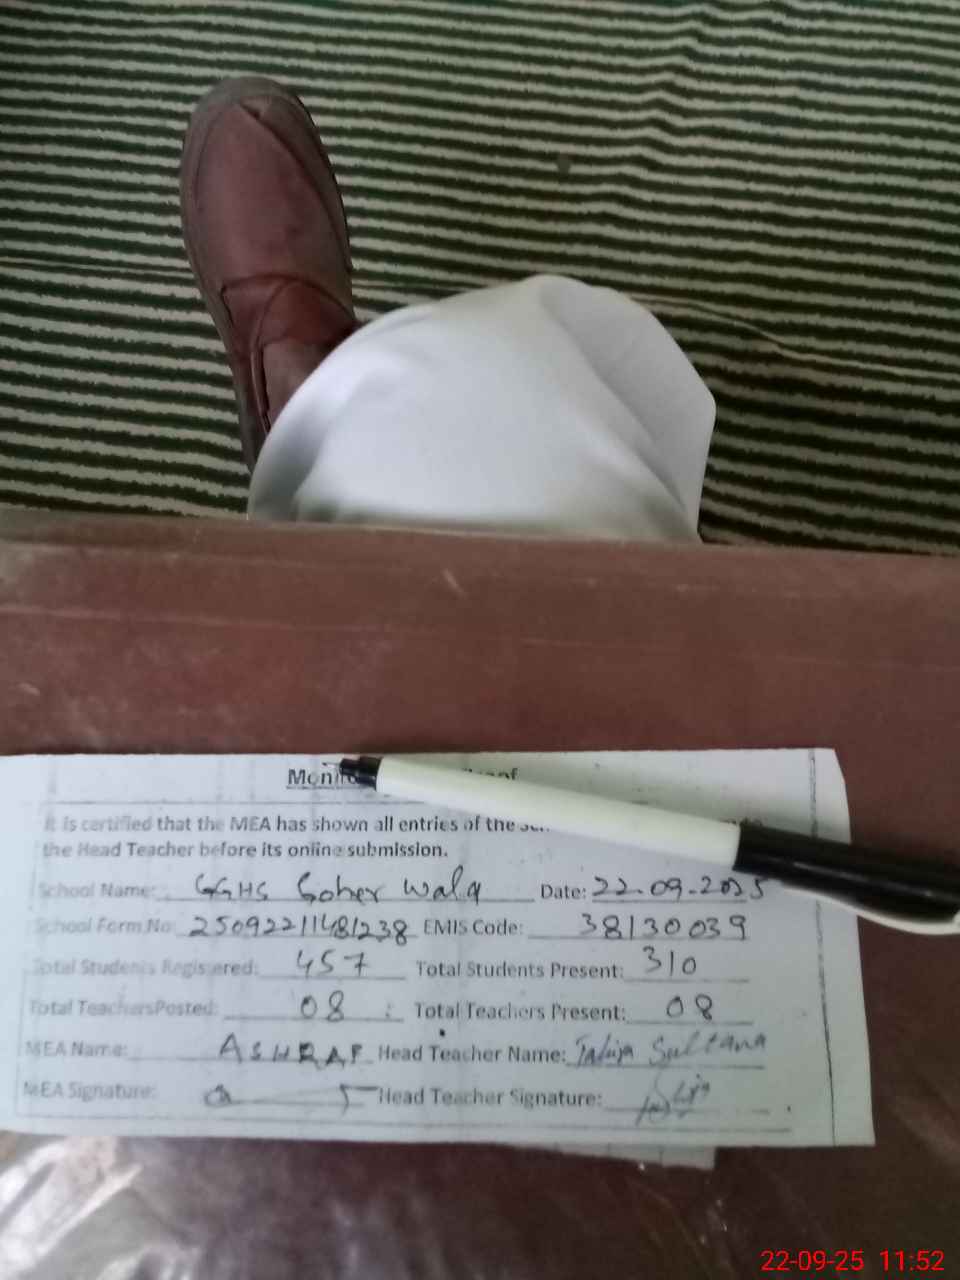 It is certified that the MEA has shown all entries of the
the Head Teacher before its online submission.
School Name: GGHS Goher Wala Date: 22.09.2025
School Form No: 25092211481238 EMIS Code: 38130039
Total Students Registered: 457 Total Students Present: 310
Total TeachersPosted: 08 Total Teachers Present: 08
MEA Name: ASHRAF Head Teacher Name: Sultana
MEA Signature: Head Teacher Signature:
22-09-25 11:52